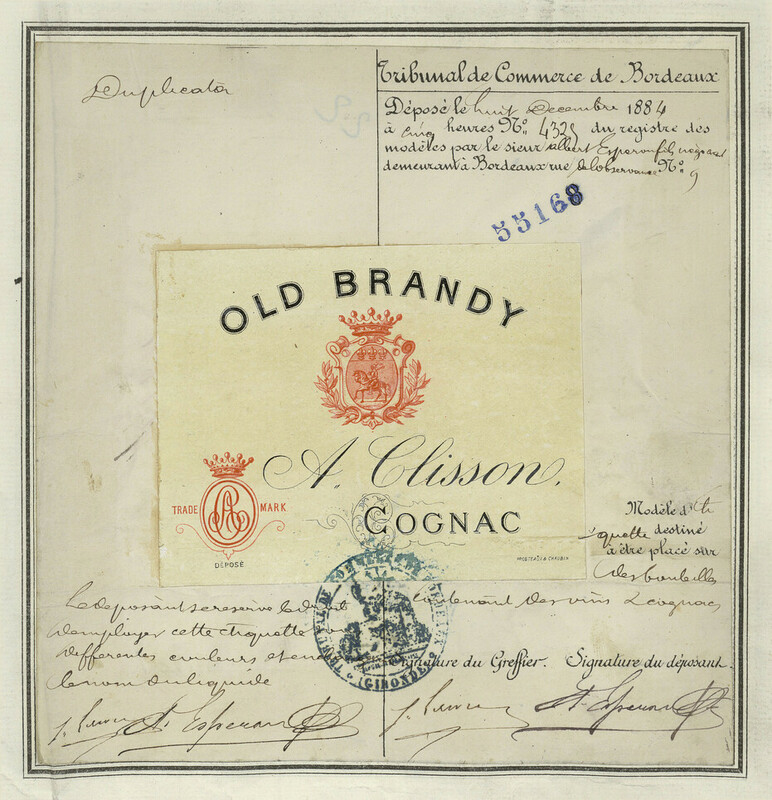 Duplicata
Tribunal de Commerce de Bordeaux
Déposé le huit Decembre 1884
à cinq heures No. 4325 du registre des
modèles par le sieur Albert Esperon fils
demeurant à Bordeaux rue de l'observance No. 9
55168
OLD BRANDY
A. Clisson.
COGNAC
TRADE MARK
DÉPOSÉ
Modèle d'éti
quette destiné
à être placé sur
des bouteilles
contenant des vins & cognacs
Le deposant se reserve le droit
d'employer cette etiquette
differentes couleurs et
le nom du liquide
TRIBUNAL DE COMMERCE DE BORDEAUX
(GIRONDE)
Signature du Greffier. Signature du déposant.
A. Esperon
A. Esperon